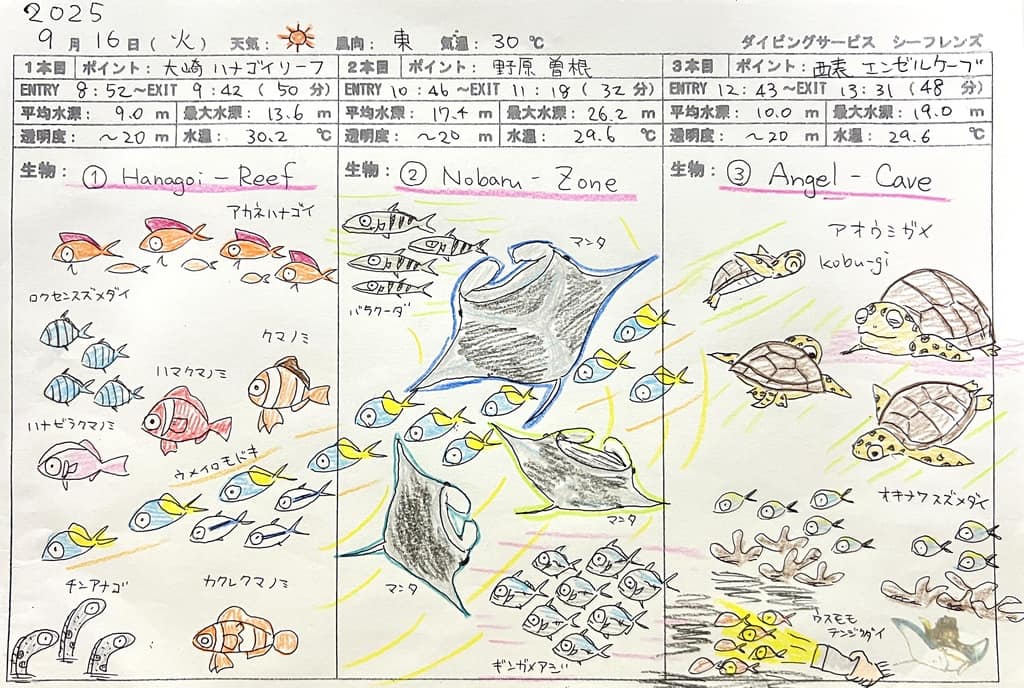 2025
9月16日(火) 天気: 風向: 東 気温: 30℃ ダイビングサービス シーフレンズ
1本目 ポイント: 大崎 ハナゴイリーフ
ENTRY 8:52~EXIT 9:42(50分)
平均水深: 9.0 m 最大水深: 13.6 m
透明度: ~20 m 水温: 30.2 ℃
生物: ① Hanagoi-Reef
アカネハナゴイ
ロクセンスズメダイ
クマノミ
ハマクマノミ
ハナビラクマノミ
ウメイロモドキ
チンアナゴ
カクレクマノミ
2本目 ポイント: 野原曽根
ENTRY 10:46~EXIT 11:18(32分)
平均水深: 17.4 m 最大水深: 26.2 m
透明度: ~20 m 水温: 29.6 ℃
生物: ② Nobaru-Zone
マンタ
バラクーダ
マンタ
マンタ
ギンガメアジ
3本目 ポイント: エンゼルケーブ
ENTRY 12:43~EXIT 13:31(48分)
平均水深: 10.0 m 最大水深: 19.0 m
透明度: ~20 m 水温: 29.6 ℃
生物: ③ Angel-Cave
アオウミガメ
kobu-gi
オキナワスズメダイ
ウスモモ
テンジクダイ